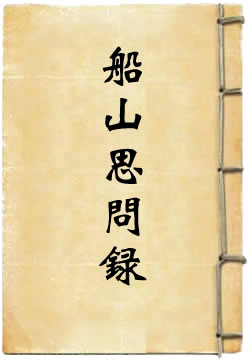 船山思問録